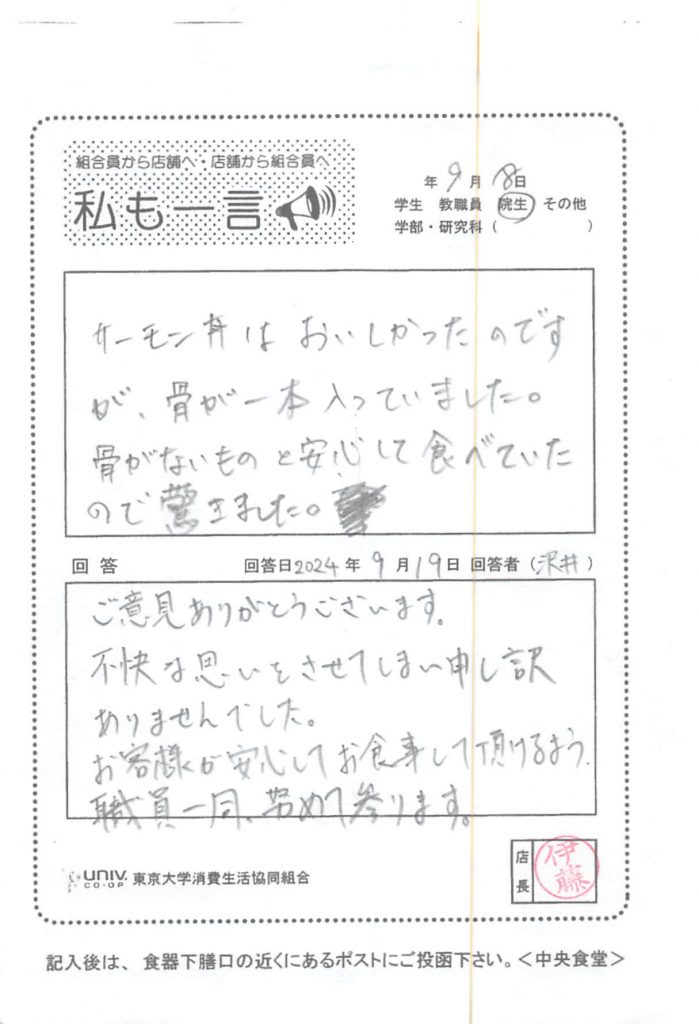 組合員から店舗へ・店舗から組合員へ
私も一言
年 9 月 18 日
学生 教職員 院生 その他
学部・研究科 ( )
サーモン丼はおいしかったのです
が、骨が一本入っていました。
骨がないものと安心して食べていた
ので驚きました。
回答 回答日 2024 年 9 月 19 日 回答者 (沢井)
ご意見ありがとうございます。
不快な思いをさせてしまい申し訳
ありませんでした。
お客様が安心してお食事して頂けるよう、
職員一同、努めて参ります。
UNIV. CO-OP 東京大学消費生活協同組合
店長 伊藤
記入後は、食器下膳口の近くにあるポストにご投函下さい。<中央食堂>